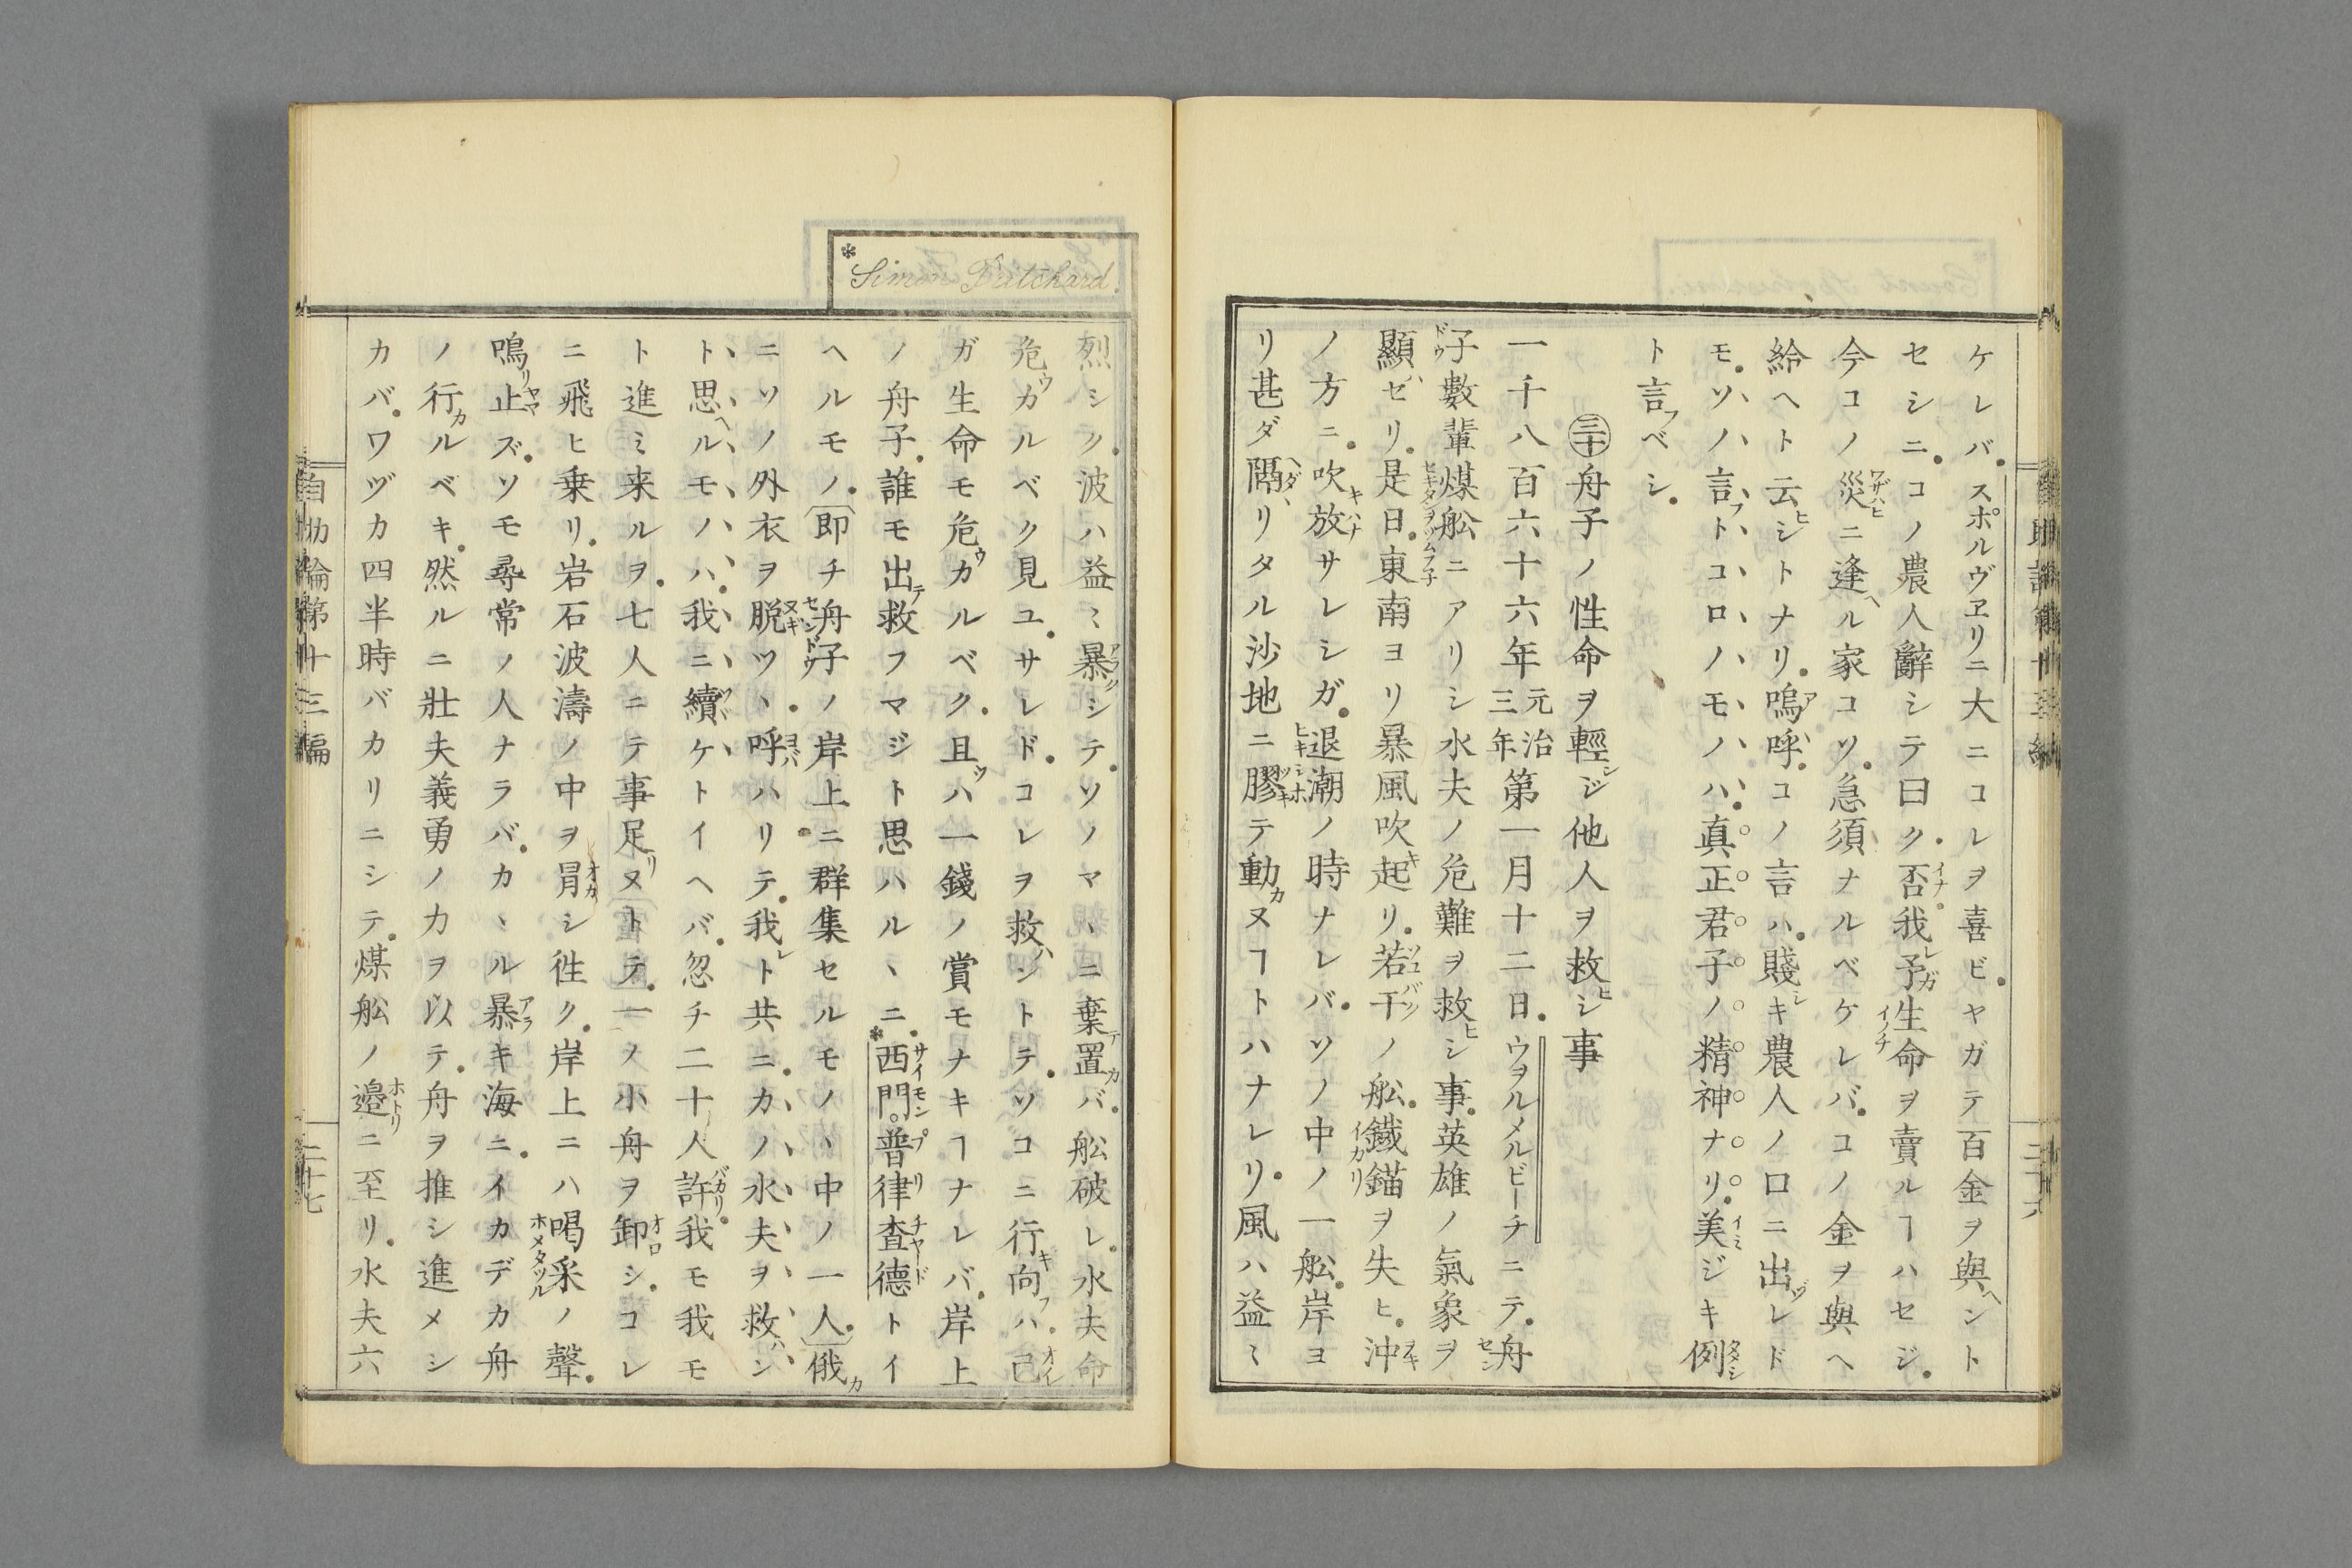 ケレバ。スポルヴヱリニ大ニコレヲ喜ビ。ヤガテ百金ヲ與ヘント
セシニ。コノ農人辭シテ曰ク。否。我レ予ガ生命ヲ賣ルヿハセジ。
今コノ災ニ逢ヘル家コソ。急須ナルベケレバ。コノ金ヲ與ヘ
給ヘト云ヒシトナリ。嗚呼。コノ言ハ。賤シキ農人ノ口ニ出ヅレド
モ。ソノ言フトコロノモノハ。真正君子ノ精神ナリ。美ジキ例
ト言フベシ。
㉚舟子ノ性命ヲ輕ンジ他人ヲ救ヒシ事
一千八百六十六年元治三年第一月十二日。ウヲルメルビーチニテ。舟
子數輩煤舩ニアリシ水夫ノ危難ヲ救ヒシ事。英雄ノ氣象ヲ
顯ハセリ。是日。東南ヨリ暴風吹起キリ。若干ノ舩。鐵錨ヲ失ヒ。沖
ノ方ニ。吹キ放ハナサレシガ。退潮ノ時ナレバ。ソノ中ノ一舩。岸ヨ
リ甚ダ隔ヘダヽリタル沙地ニ膠テ動カヌヿトハナレリ。風ハ益ミ
Simon Pritchard.
烈シク。波ハ益ミ暴シテ。ソノマヽニ棄テ置カバ。舩破レ。水夫命
危ウカルベク見ユ。サレド。コレヲ救ハントテ。ソコニ行キ向フハ。己
ガ生命モ危ウカルベク。且ツハ一錢ノ賞モナキヿナレバ。岸上
ノ舟子。誰モ出テ救フマジト思ハルヽニ。*西門。普律査德トイ
ヘルモノ。〔即チ舟子ノ岸上ニ群集セルモノヽ中ノ一人。〕俄カ
ニソノ外衣ヲ脱ツヽ。呼ハリテ。我レト共ニ。カノ水夫ヲ救ハン
ト思ヘルモノハ。我ニ續ケトイヘバ。忽チ二十人許。我モ我モ
ト進ミ来ルヲ。七人ニテ事足リヌトテ。一ノ小舟ヲ卸シ。コレ
ニ飛ヒ乗リ。岩石波濤ノ中ヲ冒シ徃ク。岸上ニハ喝采ノ聲。
鳴リ止ヤマズ。ソモ尋常ノ人ナラバ。カヽル暴キ海ニ。イカデカ舟
ノ行カルベキ。然ルニ壯夫義勇ノ力ヲ以テ。舟ヲ推シ進メシ
カバ。ワヅカ四半時バカリニシテ。煤舩ノ邉ニ至リ。水夫六
自助論第十三編
二十七